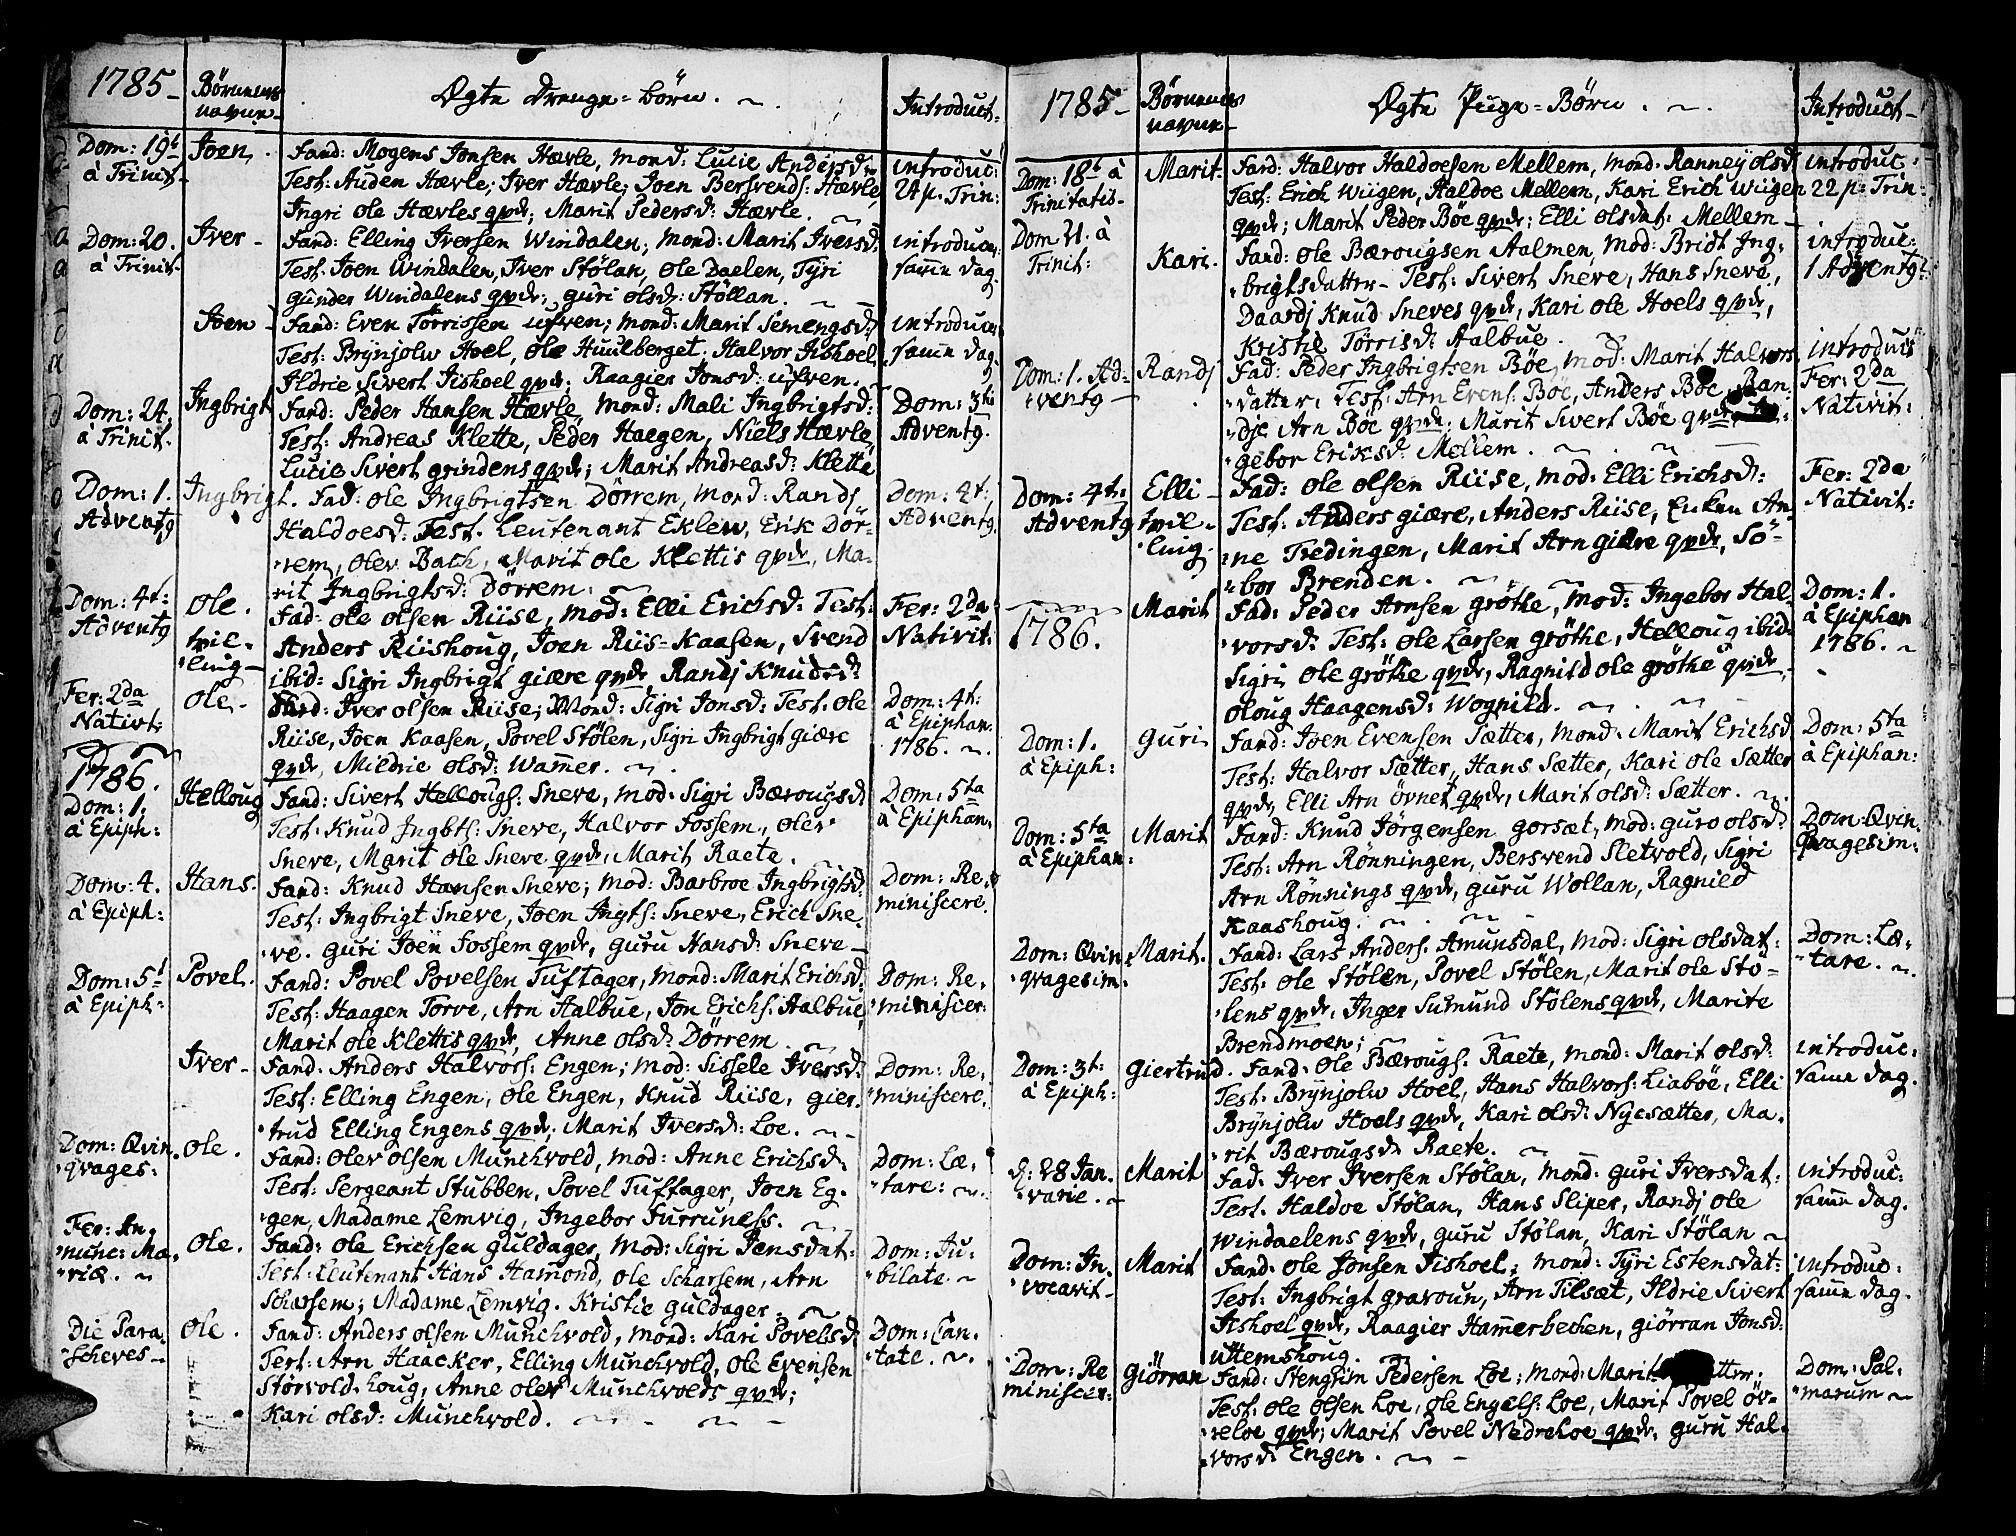 1785-
Børnenes
navne-
Øgte Drenge-börn. ~
Introduct:
Dom: 19t
à Trinit-
Joen.
Fand: Mogens Jonsen Hævle, mond: Lucie Andersd:
Test: Auden Hævle; Iver Hævle; Joen Bersvends: Hævle,
Ingri ole Hævles qvde; Marit Pedersd: Hævle. ~
introduc:
24 p. Trin:
Dom: 20.
à Trinit-
Iver -
Fand: Elling Iversen Windalen; mond: Marit Iversd:
Test: Joen Windalen, Iver Stölan, ole Daelen, Tÿri
Gunder Windalens qvde; guri olsd: Stöllan.
introduc:
samme dag.
Joen -
Fand: Even Törrissen ufven; mond: Marit Semengsd:
Test: Brÿnjolw Hoel, ole Huulberget. Halvor Fishoel,
Ildrie Sivert Fishoel qvde. Raagier Jonsd: ufven. ~
introduc:
samme dag.
Dom: 24.
à Trinit.
Ingbrigt
Fand: Peder Hansen Hævle, mond: Mali Ingbrigtsd:
Test: Andreas Klette, Peder Haegen, Niels Hævle,
Lucie Sivert grindens qvde; Marit Andreasd: Klette
Dom: 3tie
Adventg.
Dom: 1.
Adventg
Ingbrigt.
Fad: ole Ingbrigtsen Dörrem, mond: Randj
Haldoesd: Test. Leutenant Eklew, Erik Dör-
-rem, olev Bakh, Marit ole Klettis qvde, Ma-
rit Ingbrigtsd: Dörrem. ~
Dom: 4t:
Adventg.
Dom: 4t:
Adventg
Ole.
tvil-
-ling-
Fad: ole olsen Riise, mod: Elli Erichsd: Test:
Anders Riishoug, Joen Riis-Kaasen, Svend
ibid: Sigri Ingbrigt giære qvde Randj Knudsd:
Fer: 2da
Nativit:
Fer: 2da
Nativt:
Ole.
Fand: Iver olsen Riise; Mond: Sigri Jonsd: Test: ole
Riise, Joen Kaasen, Povel Stölen, Sigri Ingbrigt Giære
qvde, Mildrie olsd: Wammer. ~
Dom: 4t:
à Epiphan.
1786. ~.
1786.
Dom: 1.
à Epiph:
Helloug
Fand: Sivert Hellougs: Sneve, mod: Sigri Bærougsd:
Test: Knud Ingbts: Sneve, Halvor Fossem, olev
Sneve, Marit ole Sneve qvde, Marit Raete.
Dom: 5ta
à Epiphan:
Dom: 4.
à Epiph:
Hans.
Fand: Knud Hansen Sneve; mod: Barbroe Ingbrigtsd:
Test: Ingbrigt Sneve, Joen Ingts: Sneve, Erich Sne-
-ve. guri Joen Fossem qvde, guru Hansd: Sneve -
Dom: Re-
miniscere.
Dom: 5t
à Epiph:
Povel.
Fand: Povel Povelsen Tuftager, mond: Marit Erichsd:
Test: Haagen Torve, Arn Halbue, Jon Erichs: Aalbue,
Marit ole Klettis qvde, Anne olsd: Dörrem. ~
Dom: Re-
-miniscer:
Iver -
Fand: Anders Halvors: Engen; mod: Sissele Iversd:
Test: Elling Engen, ole Engen, Knud Riise, gier-
-trud Elling Engens qvde; Marit Iversd: Loe. ~ -
Dom: Re-
-miniscere.
Dom: Qvin-
-qvages:
Ole.
Fand: olev olsen Munchvold, mod: Anne Erichsd:
Test: Sergeant Stubben, Povel Tuftager, Joen Eg-
-gen, Madame Lemvig, Ingebor Furruness.
Dom: Læ-
-tare: ~.
Fer: An-
-nunc: Ma-
-riæ. ~
Ole.
Fand: ole Erichsen guldager, mod: Sigri Jensdat:
Test: Leutenant Hans Hamond, ole Scharsem, Arn
Scharsem; Madame Lemvig. Kristie guldager. ~
Dom: Ju-
-bilate. ~
Die Para-
-scheves -
Ole.
Fand: Anders olsen Munchvold, mond: Kari Povelsd:
Test: Arn Haacker, Elling Munchvold, ole Evensen
Störvold-houg, Anne olev Munchvolds qvde;
Kari olsd: Munchvold. ~ - ~ -
Dom: Can-
-tate. ~.
1785-
Børnenes
navne-
Øgte Pige-Börn. ~.
Introduct-
Dom: 18t à
Trinitatis-
Marit.
Fand: Halvor Haldoesen Mellem, mod: Ranneÿ olsd:
Test: Erich Wiigen, Haldoe Mellem, Kari Erich Wiigen
qvde; Marit Peder Böe qvde; Elli olsdat: Mellem -
introduct:
22 p: Trin:
Dom 21. à
Trinit:
Kari.
Fand: ole Bærougsen Aalmen, mod: Bridt Ing-
-brigtsdatter - Test: Sivert Sneve, Hans Sneve,
Daardj Knud Sneves qvde, Kari ole Hoels qvde,
Kristie Törrisd: Aalbue.
introduc:
1 Adventg:
Dom: 1. Ad-
-ventg -
Randj
Fad: Peder Ingbrigtsen Böe, mod: Marit Halvors-
-datter. Test: Arn Evens: Böe, Anders Böe, Ran-
-dje Arn Böe qvde: Marit Sivert Böe qvde
-gebor Eriksd: Mellem. ~
introduct
Fer: 2da
Nativit:
Dom: 4t:
Adventg
Elli -
tvil-
-ling.
Fad: ole olsen Riise, mod: Elli Erichsd:
Test: Anders giære, Anders Riise, Enken An-
-ne Tredingen, Marit Arn giære qvde, Sö-
-bor Brenden. ~
Fer: 2da
Nativit:
1786.
Marit
Fad: Peder Arnsen gröthe, mod: Ingebor Hal-
-vorsd: Test: ole Larsen gröthe, Helloug ibid:
Sigri ole gröthe qvde, Ragnild ole gröthe qvde,
oloug Haagensd: Wognild. ~
Dom: 1.
à Epiphan
1786. ~
Dom: 1.
à Epiph:
guri
Fand: Joen Evensen Sætter, mond: Marit Erichsd
Test: Halvor Sætter, Hans Sætter, Kari ole Sætter
qvde, Elli Arn övnet qvde, Marit olsd: Sætter. ~.
Dom: 5ta
à Epiphan:
Dom: 5ta
à Epiphan:
Marit
Fand: Knud Jörgensen Gorsæt, mod: guro olsd:
Test: Arn Rönningen, Bersvend Sletvold, Sigri
Arn Rönnings qvde, guru Wollan, Ragnild
Kaashoug. ~ . ~ -
Dom: Qvin
qvagesim:
Dom: Qvin
-qvagesim:
Marit.
Fand: Lars Anders: Amunsdal, mod: Sigri olsdat:
Test: ole Stölen, Povel Stölen, Marit ole Stö-
-lens qvde, Inger Sumund Stölens qvde, Marite
Brendmoen; ~
Dom: Læ-
-tare. ~.
Dom: 3t:
à Epiph:
Giertrud.
Fand: Ole Bærougs: Raete, mond: Marit olsd:
Test: Brÿnjolw Hoel, Hans Halvors: Liaböe, Elli
Brÿnjolw Hoels qvde, Kari olsd: Nyesætter, Ma-
-rit Bærougsd: Raete. ~
introduc:
samme dag.
d: 28 Jan-
-varie. ~
Marit
Fad: Iver Iversen Stölan, mond: guri Iversdat:
Test. Haldoe Stölan, Hans Sliper, Randj ole
Windaelens qvde, guru Stölan, Kari Stölan ~
introduc:
samme dag.
Dom: In-
-vocavit -
Marit
Fand: ole Jonsen Fishoel; mond: Tÿri Estensdat:
Test: Ingbrigt gravoun, Arn Tilsæt, Ildrie Sivert
Fishoel qvde, Raagier Hammerbechen, giörran Jonsd:
uttemshoug.
introduc:
samme dag.
Dom: Re
miniscer:
Giörran
Fand: Stengrim Pedersen Loe; mond: Marit
Test: ole olsen Loe, ole Engels: Loe, Marit Povel öv-
-reloe qvde; Marit Povel Nedreloe qvde, guru Hal-
vorsd: Engen. ~ -
Dom: Pal-
-marum ~